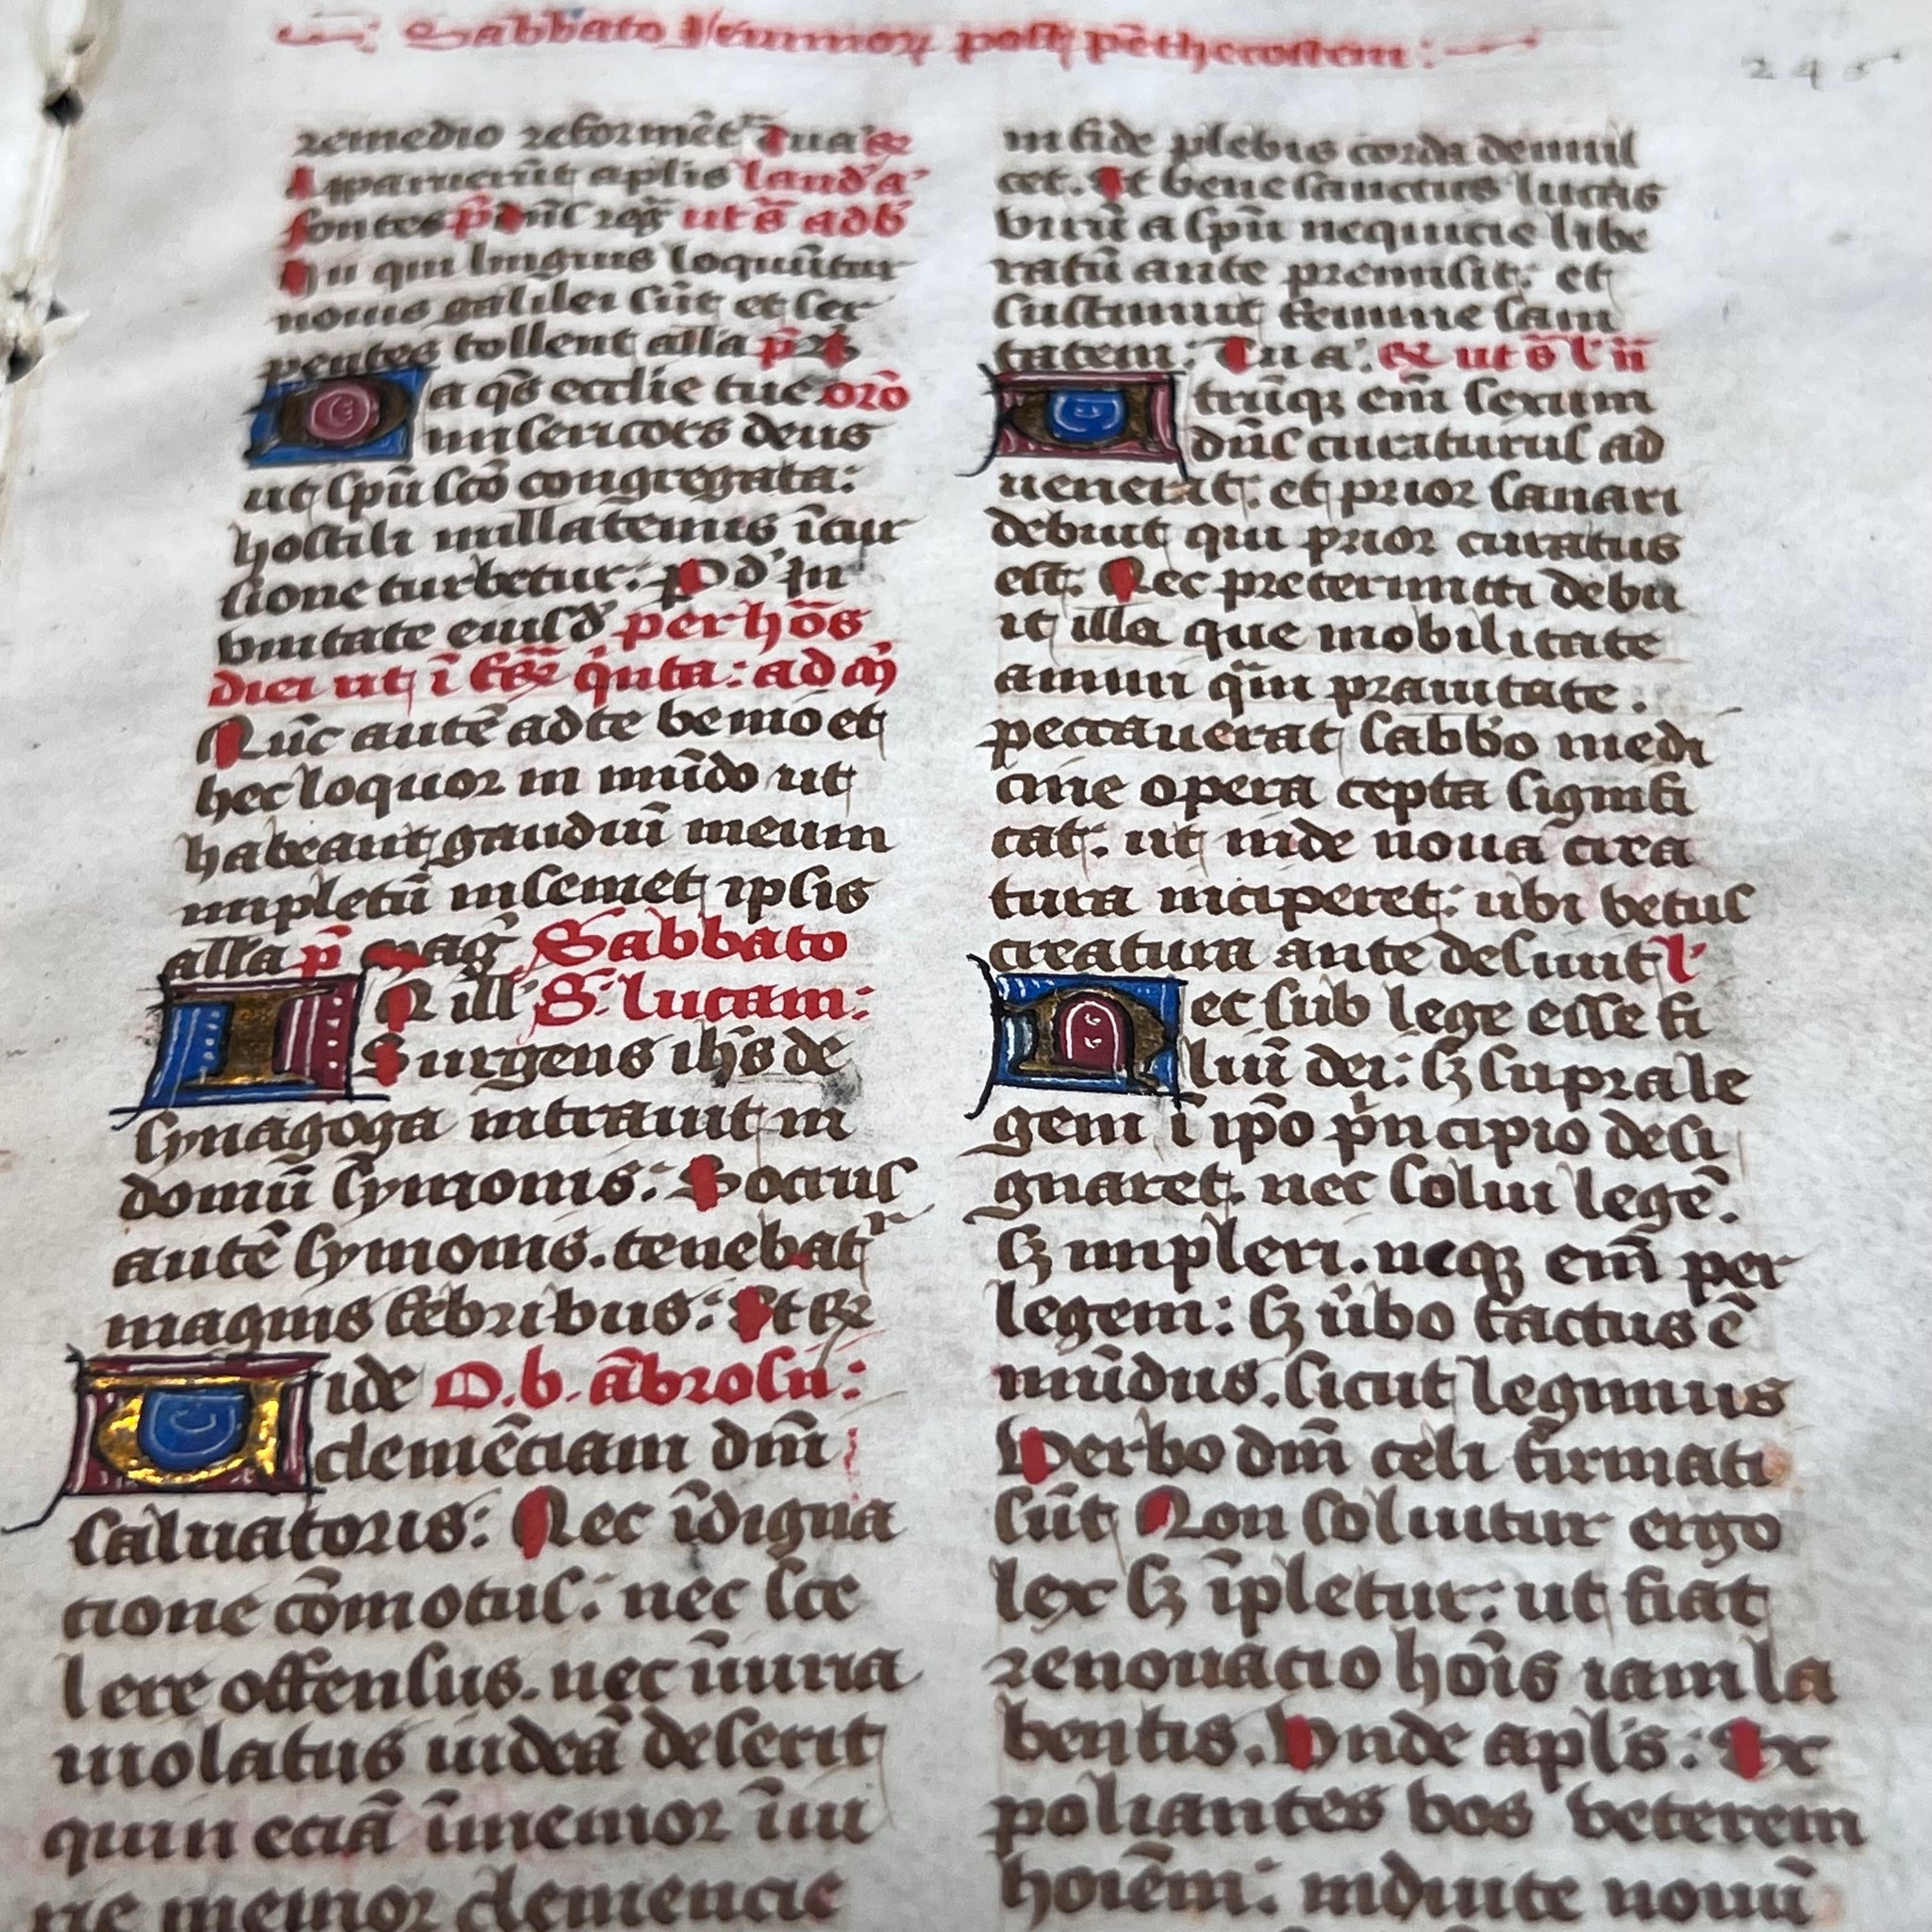 Sabbato Ieiuniorꝝ post pēthecostem:
246
remedio reformēt Tua et
Apparuerūt aplis laud'a'
fontes p̄ dn̄s reg̃ ut s̄ ad b'
Hii qui linguis loquūtur
nouis galilei sūt et ser
pentes tollent alla p̄
Da qs̄ ecclie tue orō
misericors deus
ut spū scō congregata:
hostili nullatenus īcur
sione turbetur: P d' In
vnitate eiusd' per hōs
diei ut ī quinta: ad m̄
Nūc autē ad te venio et
hec loquor in mūdo ut
habeant gaudiū meum
impletū in semet ipsis
alla p̄ mag̃ Sabbato
IN ill' S. lucam:
Surgens ihs de
synagoga intrauit in
domū symonis: Socrus
autē symonis. tenebat᷑
magnis febribus: Et
Uide O. b. ābrosii:
clemēciam dn̄i
saluatoris: Nec īdigna
tione cōmotus: nec sce
lere offensus. nec iniuria
uiolatus iudeā deserit
quin eciā īmemor īiu
rie memor clemencie
in fide plebis corda demul
cet. Et bene sanctus lucas
virū a spū nequicie libe
ratū ante premisit: et
sustinuit femine sani
tatem: Tu a'. et ut s̄ l' ii
Utrūqꝫ em̄ sexum
dn̄s curaturus ad
uenerat: et prior sanari
debuit qui prior curatus
est. Nec pretermitti debu
it illa que mobilitate
animi qͣm prauitate.
peccauerat sabbō medi
cine opera cepta signifi
cat. ut inde noua crea
tura inciperet: ubi vetus
creatura ante desiuit l'
Nec sub lege esse fi
liū dei: sꝫ supra le
gem ī ipō p̍ncipio desi
gnaret. nec solui legē.
sꝫ impleri. neqꝫ em̄ per
legem: sꝫ ūbo factus ē
mūdus. sicut legimus
Verbo dn̄i celi firmati
sūt Non soluitur ergo
lex sꝫ īpletur: ut fiat
renouacio hōis iam la
bentis. Vnde apl's: Ex
poliantes vos veterem
hoiēm: induite nouū